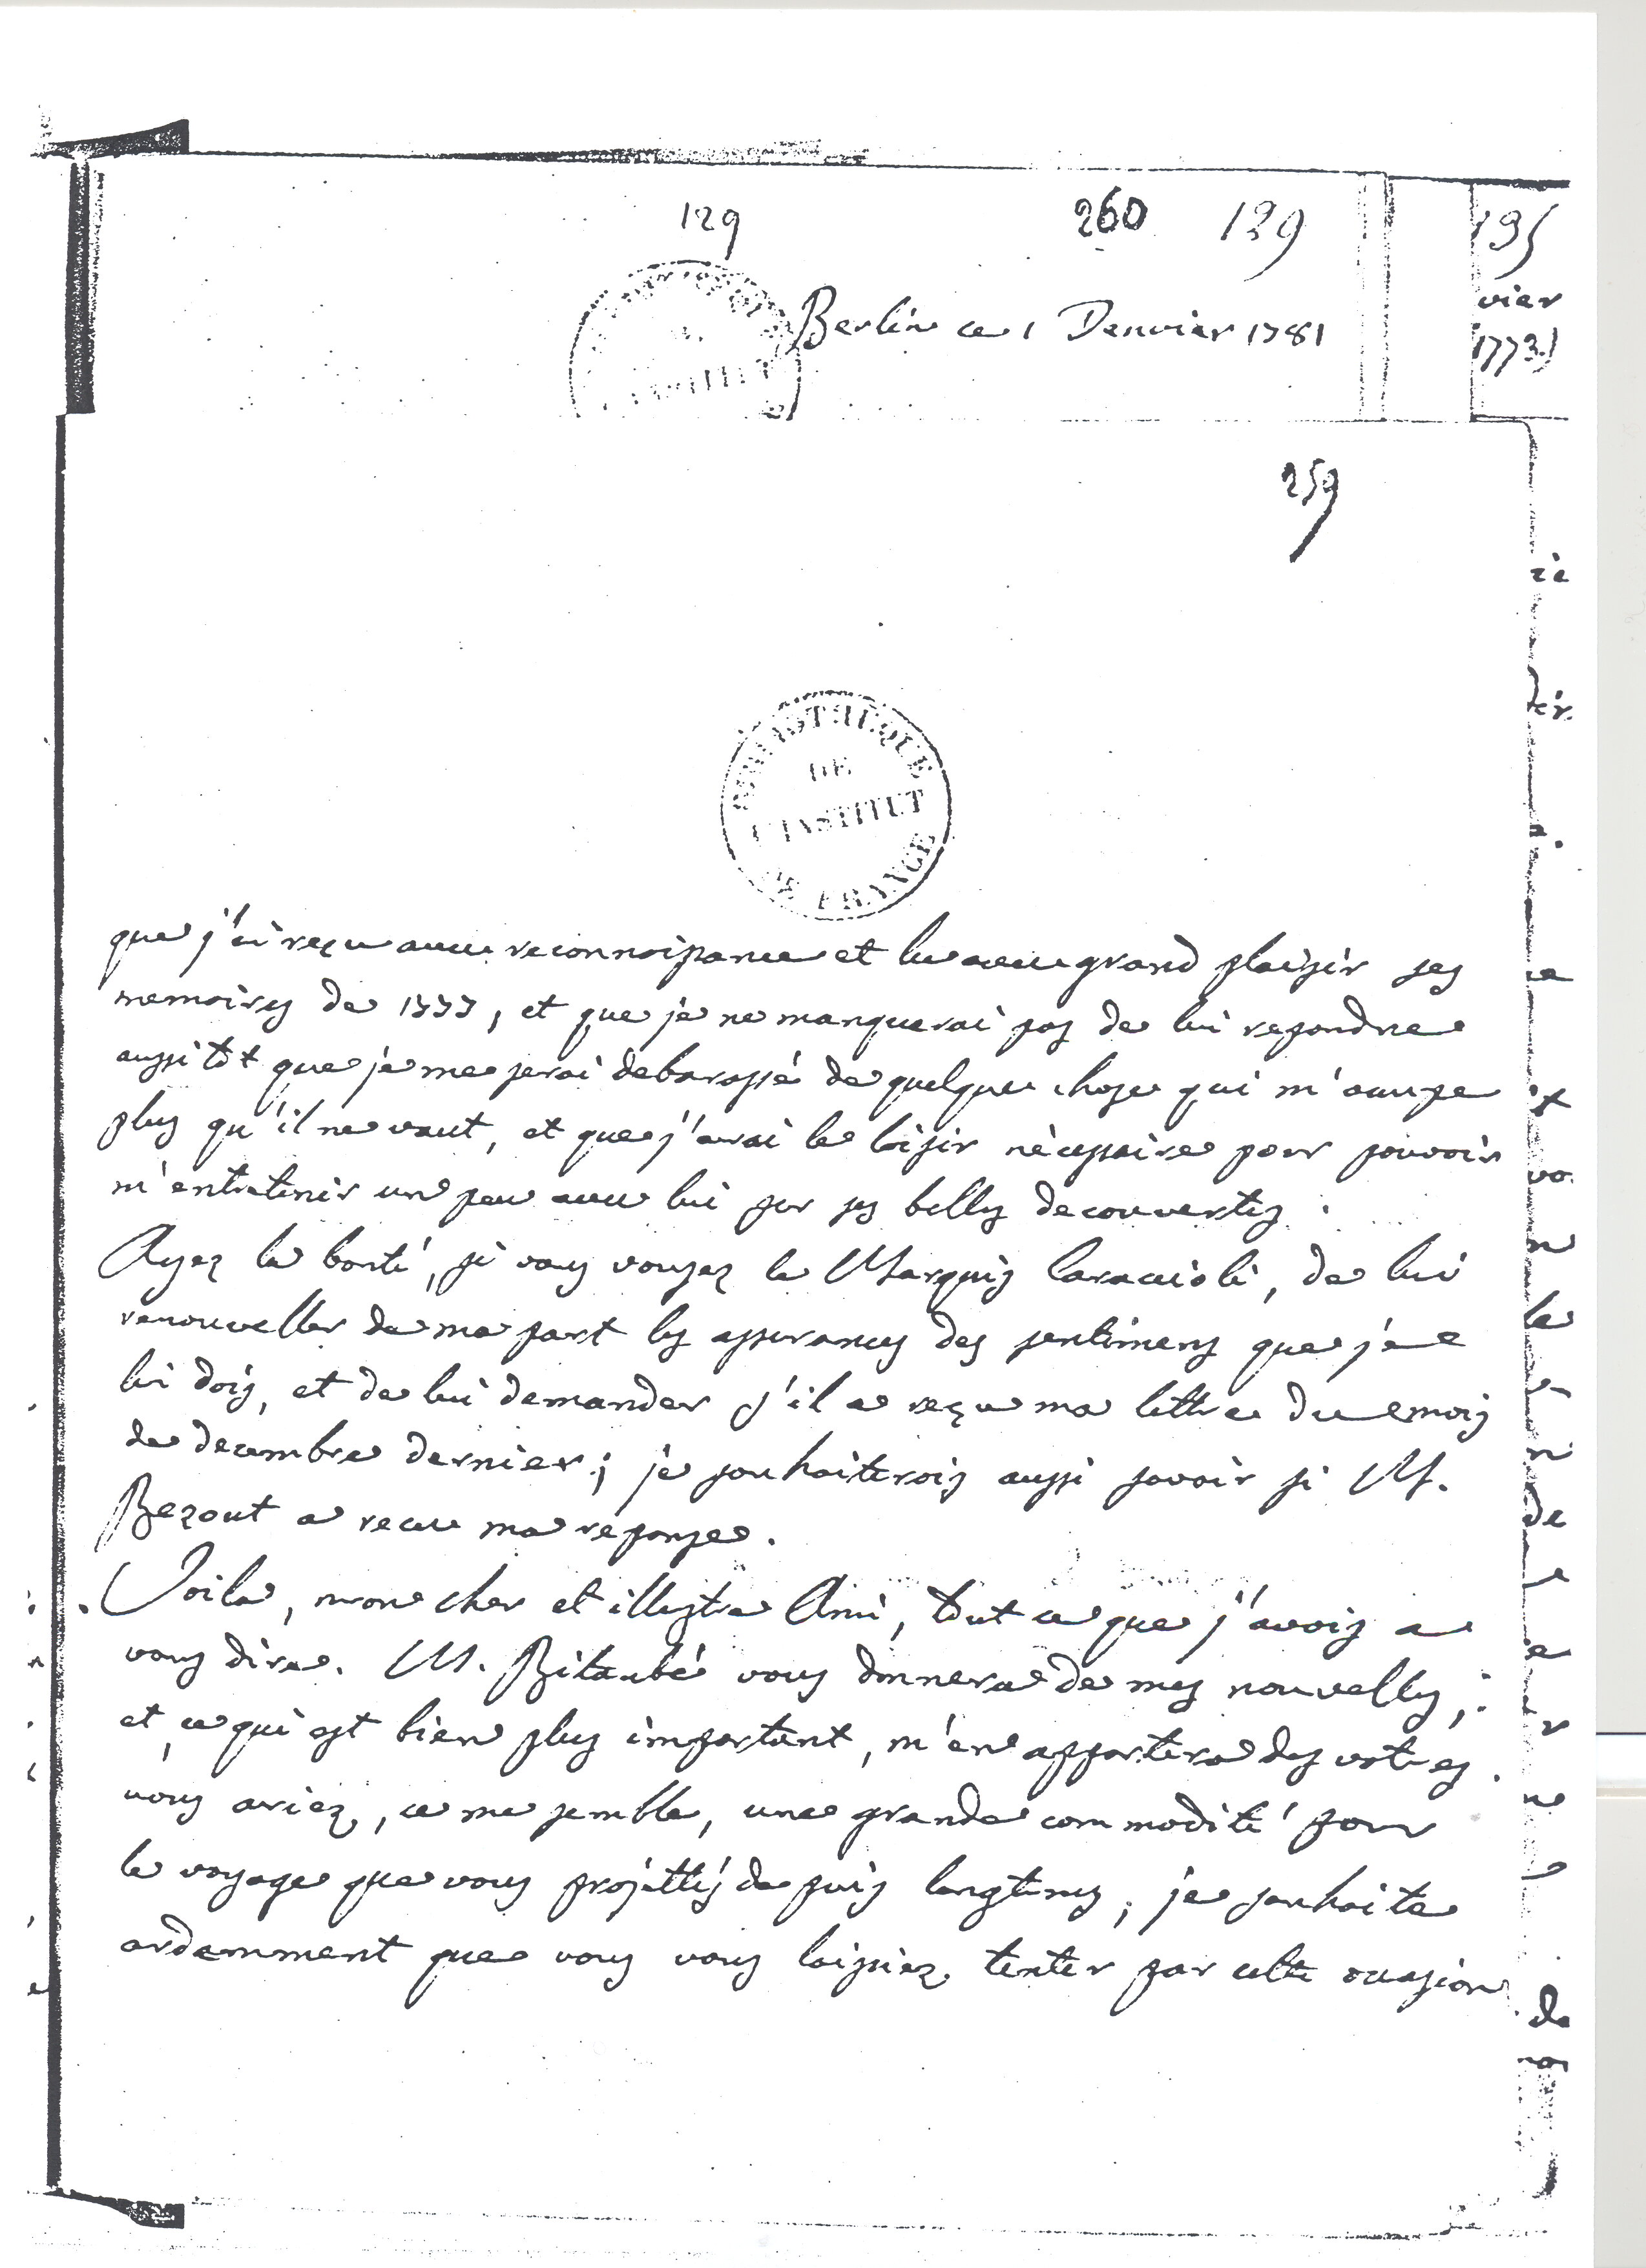 129 260 129 195
Berlin ce 1 Janvier 1781
vier
1773)
259
BIBLIOTHEQUE
DE
L'INSTITUT
DE FRANCE
que j'ai reçu avec reconnoissance et lu avec grand plaisir ses
memoires de 1777, et que je ne manquerai pas de lui repondre
aussitôt que je me serai debarassé de quelque chose qui m'occupe
plus qu'il ne vaut, et que j'aurai le loisir nécessaire pour pouvoir
m'entretenir un peu avec lui sur ses belles decouvertes.
Ayez la bonté, si vous voyez le Marquis Caraccioli, de lui
renouveller de ma part les assurances des sentimens que je
lui dois, et de lui demander s'il a reçu ma lettre du mois
de decembre dernier; je souhaiterois aussi savoir si M.
Bezout a recu ma reponse.
Voila, mon cher et illustre Ami, tout ce que j'avois a
vous dire. M. Bitaubé vous donnera de mes nouvelles;
et ce qui est bien plus important, m'en apportera des votres.
vous auriez, ce me semble, une grande commodité pour
le voyage que vous projettés depuis longtems; je souhaite
ardemment que vous vous laissiez tenter par cette occasion